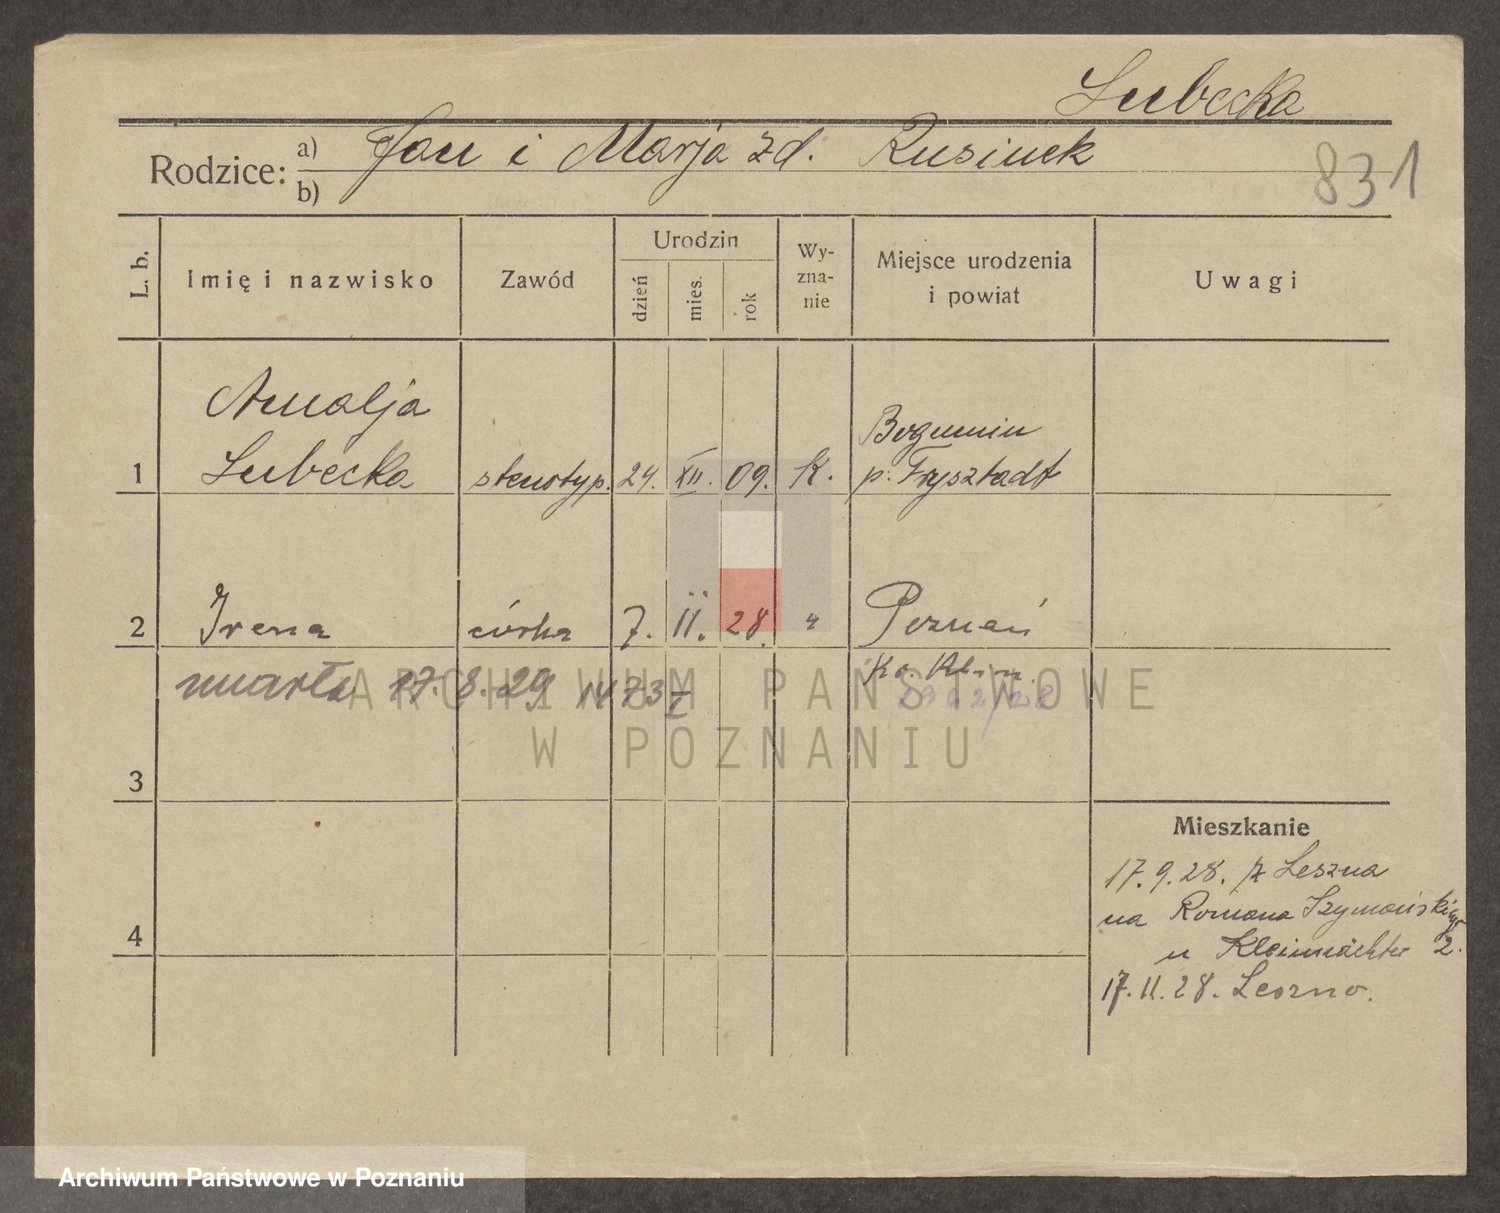 Lubecka
Rodzice: a) Jan i Marja zd. Rusinek
b)
831
L. b.
Imię i nazwisko
Zawód
Urodzin
dzień
mies.
rok
Wy-
zna-
nie
Miejsce urodzenia
i powiat
Uwagi
Amalja
Lubecka
1
stenotyp.
24. XII. 09. K.
Bogumin
p. Frysztadt
2 Irena córka 7. II. 28. " Poznań
umarła 17. 8. 29 1473 I
2962/28
ARCHIWUM PAŃSTWOWE
W POZNANIU
3
Mieszkanie
17. 9. 28. z Leszna
na Romana Szymańskiego
u Kleinwächter 2.
17. 11. 28. Leszno.
4
Archiwum Państwowe w Poznaniu